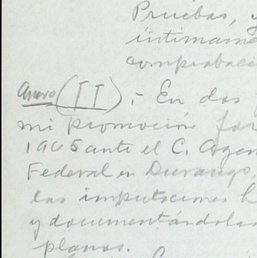 Pruebas, y
íntimame
comprobació
Anexo (II).- En dos
mi promoción for
1905 ante el C. Agen
Federal en Durango,
las imputaciones h
y documentándolas
planos.